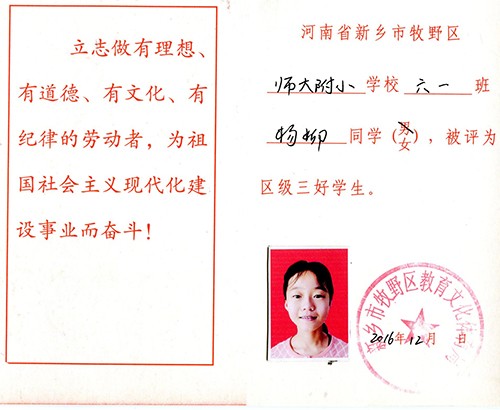 立志做有理想、
有道德、有文化、有
纪律的劳动者，为祖
国社会主义现代化建
设事业而奋斗！
河南省新乡市牧野区
师大附小学校六一班
杨柳同学(男女)，被评为
区级三好学生。
新乡市牧野区教育文化体育局
2016年12月 日